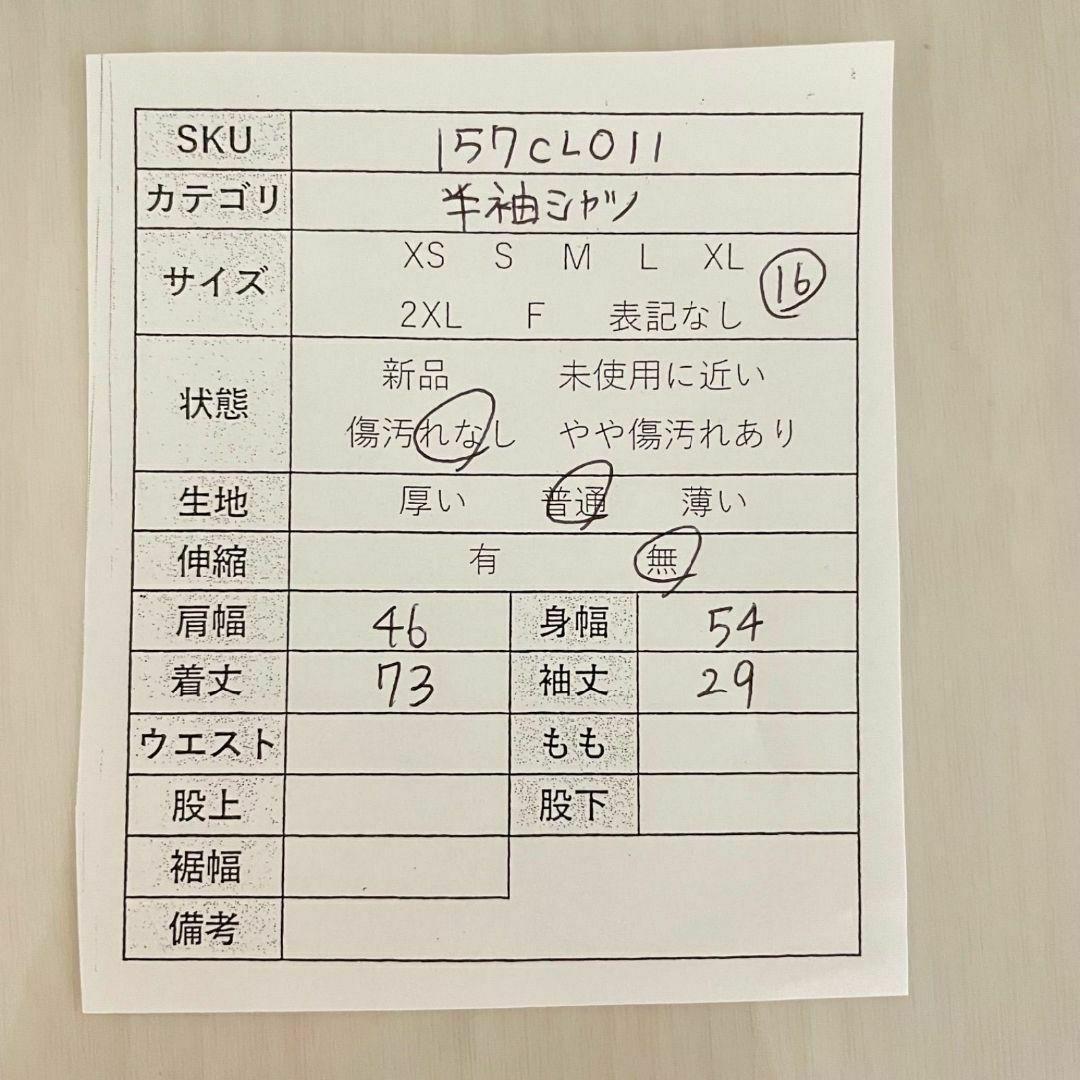 SKU 157CL011
カテゴリ 半袖シャツ
サイズ XS S M L XL 16
2XL F 表記なし
状態 新品 未使用に近い
傷汚れなし やや傷汚れあり
生地 厚い 普通 薄い
伸縮 有 無
肩幅 46 身幅 54
着丈 73 袖丈 29
ウエスト もも
股上 股下
裾幅
備考